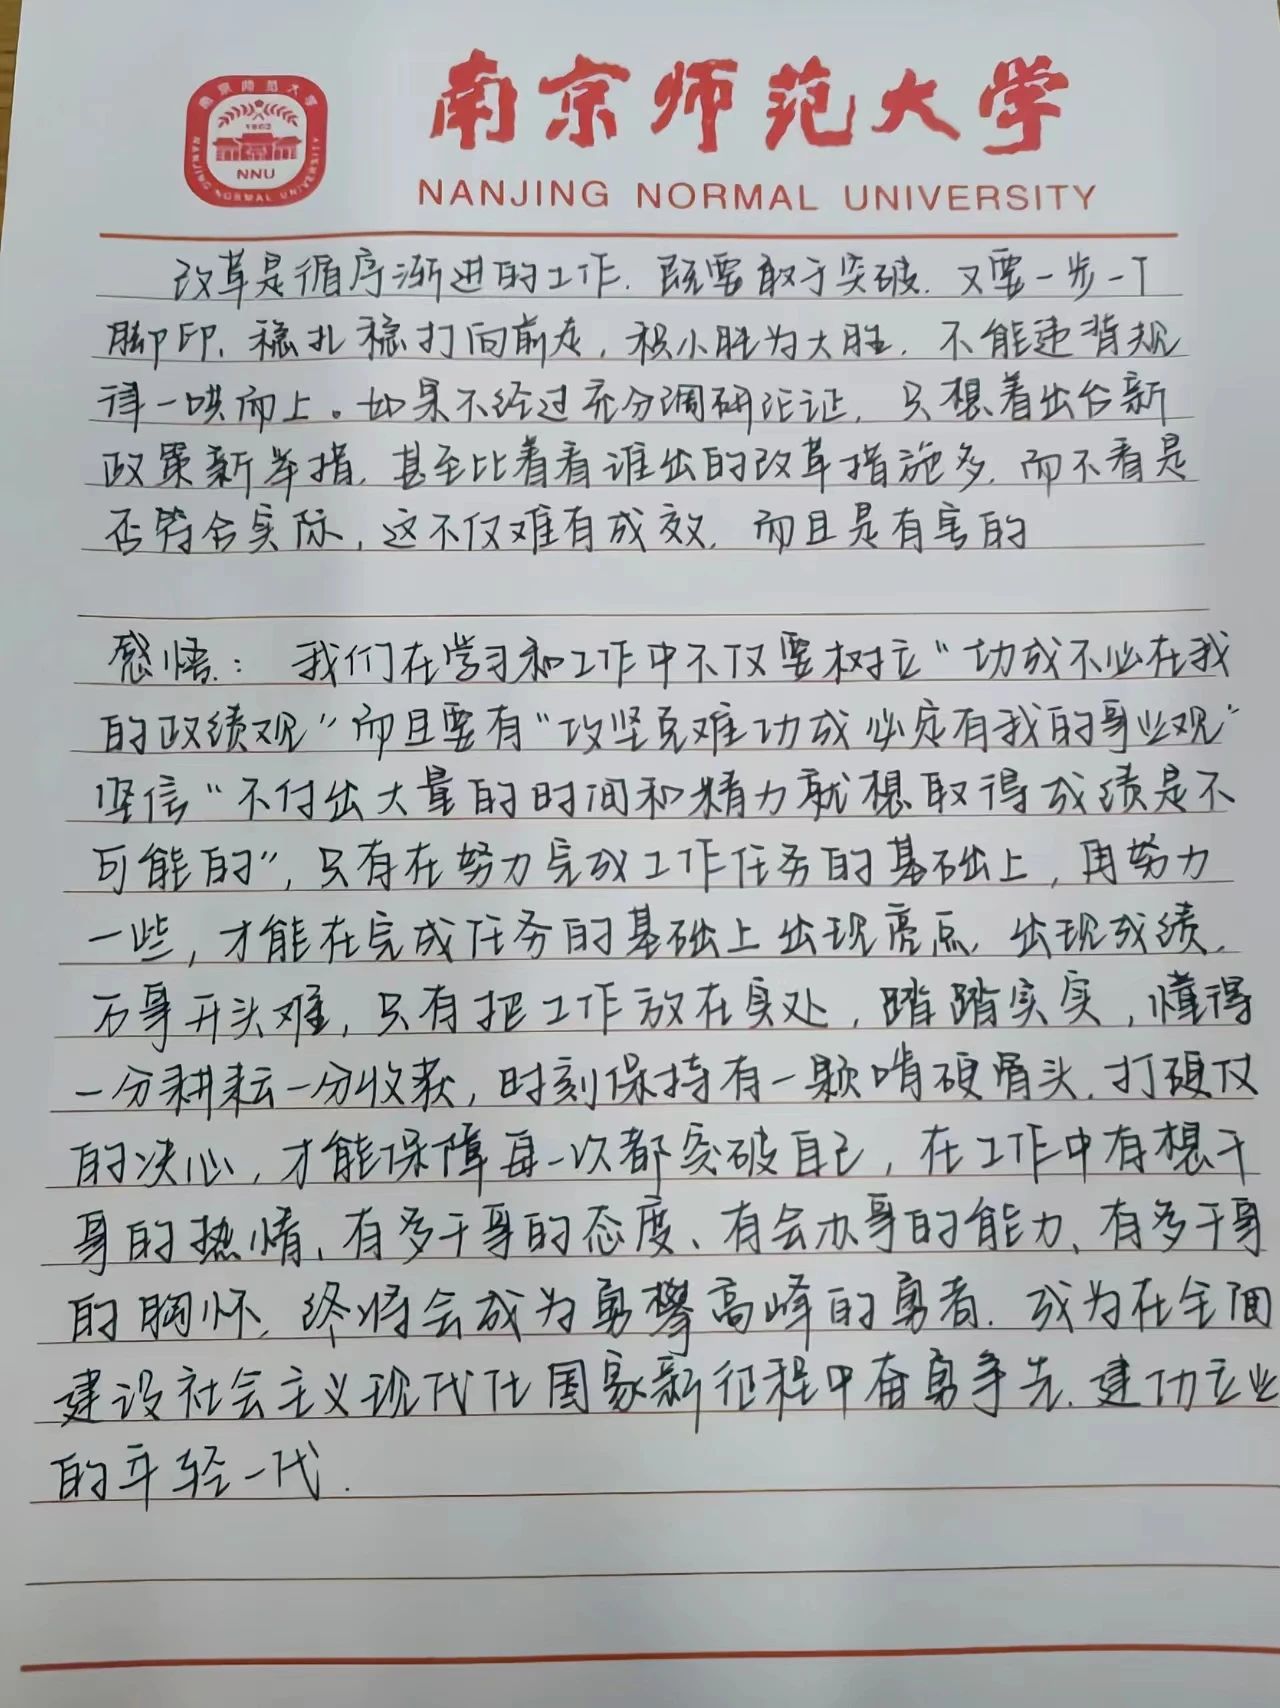 南京师范大学
NANJING NORMAL UNIVERSITY
南京师范大学
1902
NNU
NANJING NORMAL UNIVERSITY
改革是循序渐进的工作.既要敢于突破.又要一步一个
脚印.稳扎稳打向前走,积小胜为大胜.不能违背规
律一哄而上。如果不经过充分调研论证.只想着出台新
政策新举措.甚至比着看谁出的改革措施多.而不看是
否符合实际,这不仅难有成效.而且是有害的
感悟:我们在学习和工作中不仅要树立“功成不必在我
的政绩观”而且要有“攻坚克难功成必定有我的事业观”
坚信“不付出大量的时间和精力就想取得成绩是不
可能的”,只有在努力完成工作任务的基础上,再努力
一些,才能在完成任务的基础上出现亮点.出现成绩.
万事开头难,只有把工作放在实处,踏踏实实,懂得
一分耕耘一分收获,时刻保持有一颗啃硬骨头.打硬仗
的决心,才能保障每一次都突破自己,在工作中有想干
事的热情、有多干事的态度、有会办事的能力、有多干事
的胸怀.终将会成为勇攀高峰的勇者.成为在全面
建设社会主义现代化国家新征程中奋勇争先.建功立业
的年轻一代.